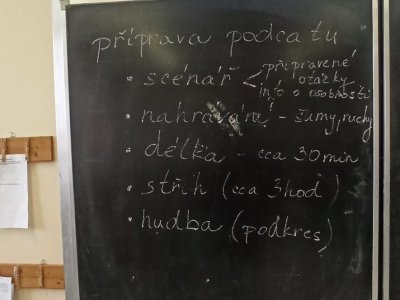 příprava podcatu
• scénář < připravené
otázky
info o osobnosti
• nahrávání - šumy, ruchy
• délka - cca 30 min
• střih (cca 3 hod)
• hudba (podkres)